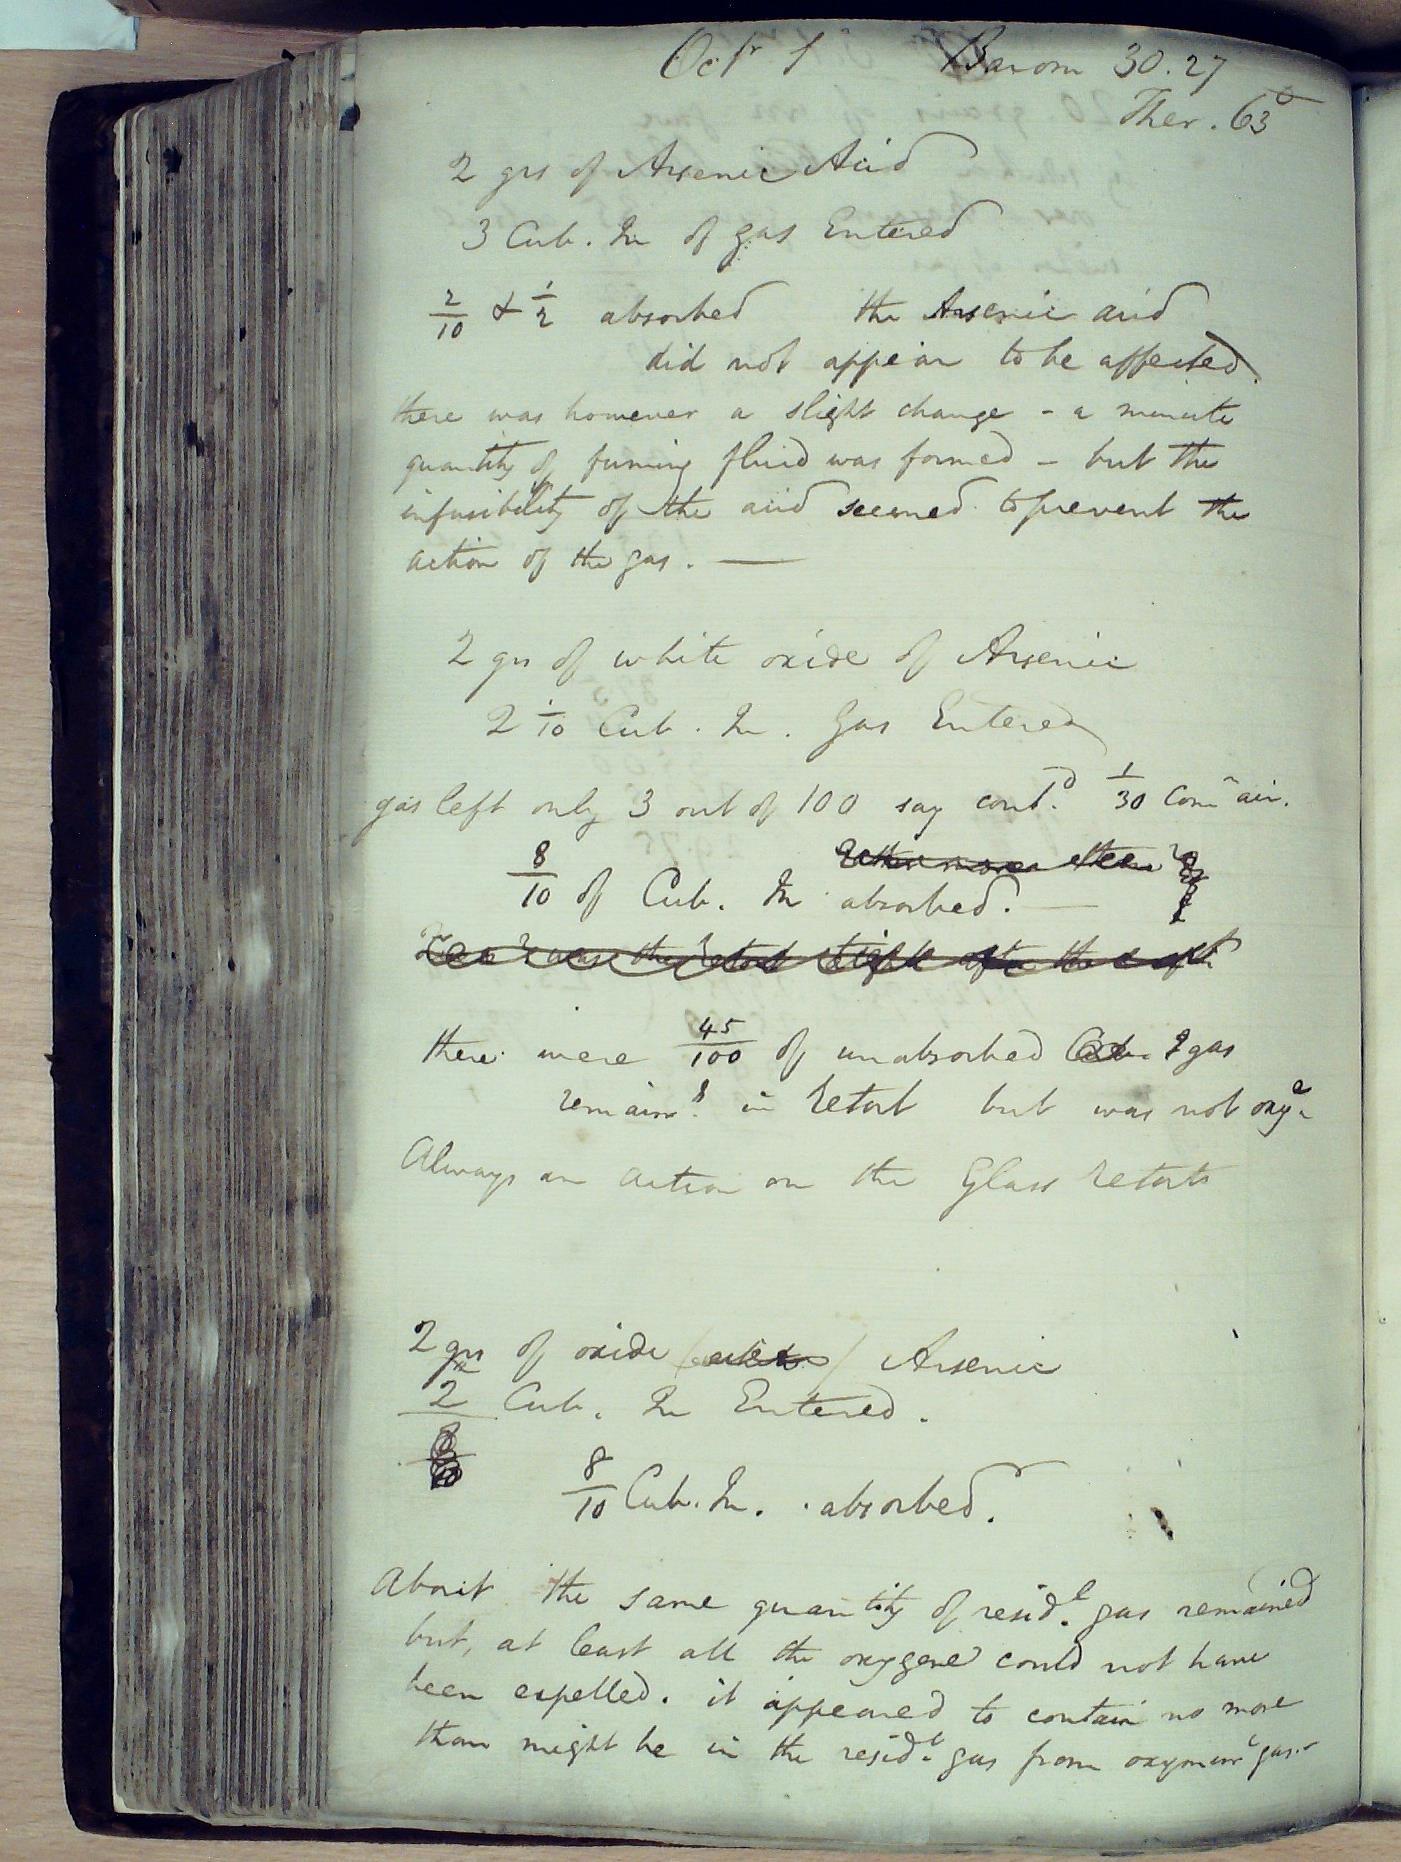 Octr 1 Barom 30.27
Ther. 63°
2 grs of Arsenic Acid
3 Cub. In of gas Entered
2/10 & 1/2 absorbed the Arsenic acid
did not appear to be affected
there was however a slight change - a minute
quantity of fuming fluid was formed - but the
infusibility of the acid seemed to prevent the
action of the gas. —
2 grs of white oxide of Arsenic
2 1/10 Cub. In. Gas Entered
gas left only 3 out of 100 say contd. 1/30 Comn air.
8/10 of Cub. In absorbed. —
there were 45/100 of unabsorbed gas
remaing in Retort but was not oxye.
Always an action on the Glass Retorts
2 grs of oxide / white / Arsenic
2 Cub. In Entered.
8/10 Cub. In. absorbed.
About the same quantity of residl. gas remained
but, at least all the oxygene could not have
been expelled. it appeared to contain no more
than might be in the residl. gas from oxymurc gas.